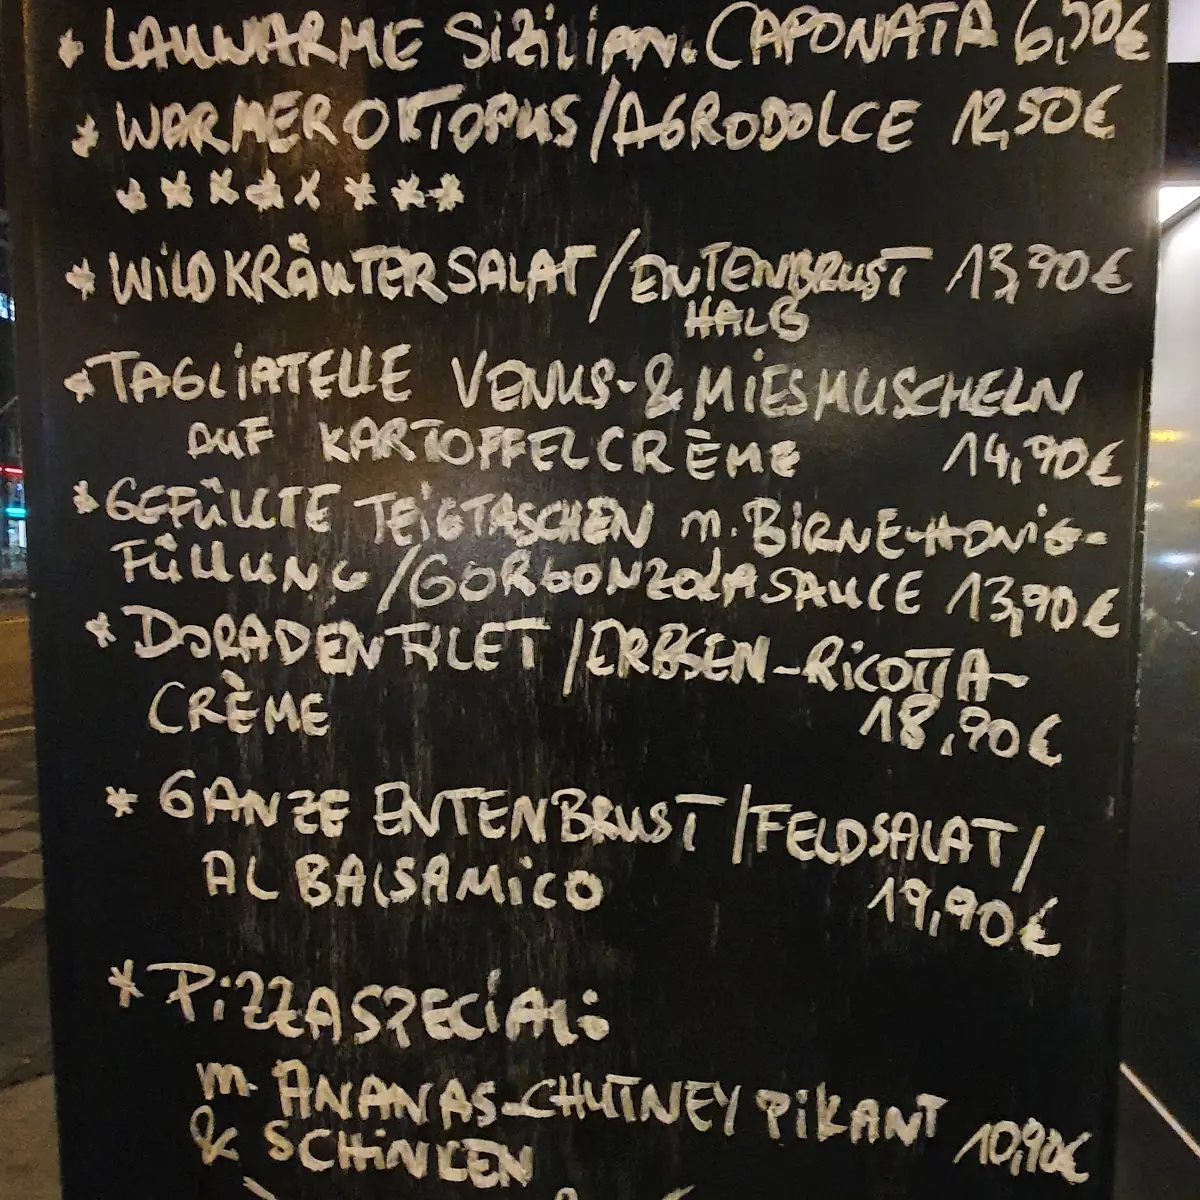 * LAUWARME SIZILIAN. CAPONATA 6,50€
* WARMER OKTOPUS/AGRODOLCE 12,50€
* * * * * * * *
* WILDKRÄUTERSALAT/ENTENBRUST 13,90€
HALB
* TAGLIATELLE VENUS-&MIESMUSCHELN
AUF KARTOFFELCRÈME 14,90€
* GEFÜLLTE TEIGTASCHEN m. BIRNE-HONIG-
FÜLLUNG/GORGONZOLASAUCE 13,90€
* DORADENFILET/ERBSEN-RICOTTA-
CRÈME 18,90€
* GANZE ENTENBRUST/FELDSALAT/
AL BALSAMICO 19,90€
* PIZZASPECIAL:
m. ANANAS-CHUTNEY PIKANT
& SCHINKEN 10,90€